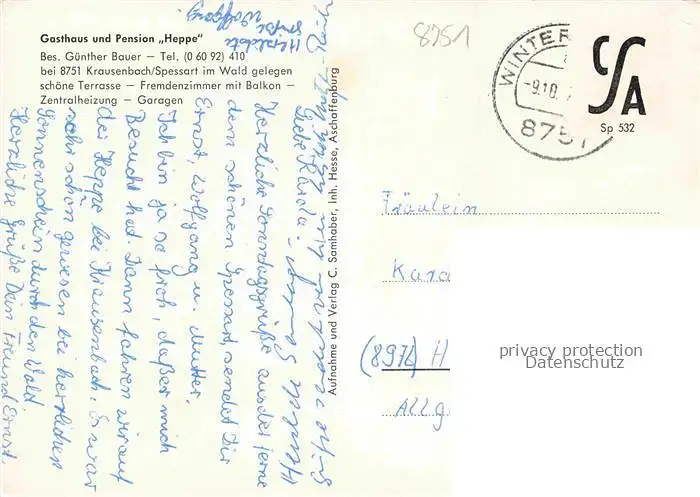 Gasthaus und Pension „Heppe"
Bes. Günther Bauer — Tel. (0 60 92) 410
bei 8751 Krausenbach/Spessart im Wald gelegen
schöne Terrasse — Fremdenzimmer mit Balkon —
Zentralheizung — Garagen
8751
WINTER
-9.10.
8751
CSA
Sp 532
Herzlichste
Grüße
Wolfgang
Liebe
Herzliche Sonntagsgrüße aus der ferne
dem schönen Spessart, sendet Dir
Ernst, Wolfgang u. Mutter.
Ich bin ja so froh, daßer mich
Besucht hat. Dann fahren wir auf
der Heppe bei Krausenbach. Es war
sehr schön gewesen bei herrlichen
Sonnenschein durch den Wald
Herzliche Grüße Dein Freund Ernst.
Aufnahme und Verlag C. Samhaber, Inh. Hesse, Aschaffenburg
Fräulein
Kara
(897 H
Allg
privacy protection
Datenschutz